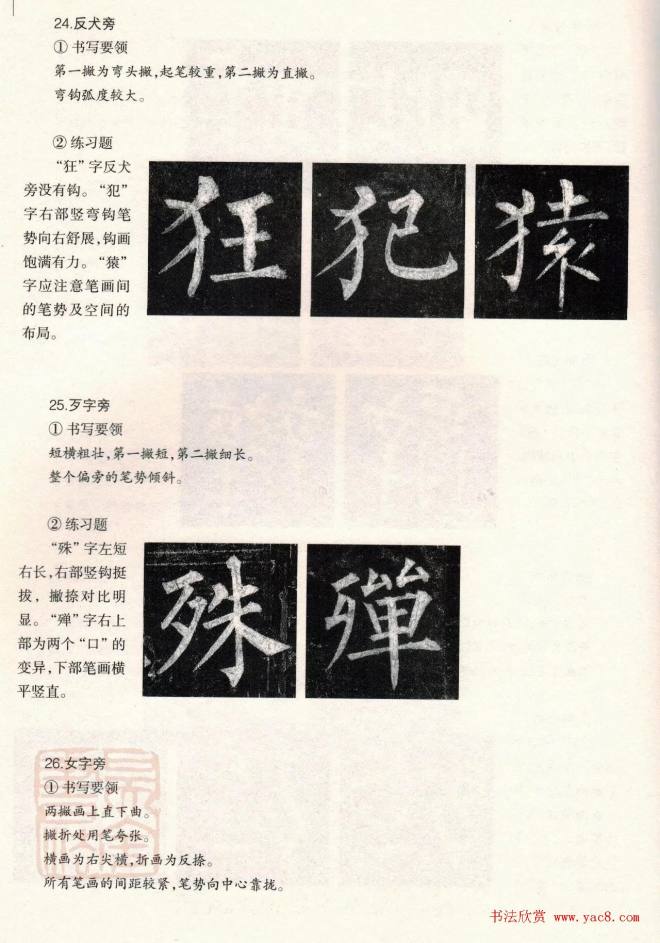 24.反犬旁
① 书写要领
第一撇为弯头撇，起笔较重，第二撇为直撇。
弯钩弧度较大。
② 练习题
“狂”字反犬
旁没有钩。“犯”
字右部竖弯钩笔
势向右舒展，钩画
饱满有力。“猿”
字应注意笔画间
的笔势及空间的
布局。
狂 犯 猿
25.歹字旁
① 书写要领
短横粗壮，第一撇短，第二撇细长。
整个偏旁的笔势倾斜。
② 练习题
“殊”字左短
右长，右部竖钩挺
拔，撇捺对比明
显。“殫”字右上
部为两个“口”的
变异，下部笔画横
平竖直。
殊 殫
26.女字旁
① 书写要领
两撇画上直下曲。
撇折处用笔夸张。
横画为右尖横，折画为反捺。
所有笔画的间距较紧，笔势向中心靠拢。
书法欣赏 www.yac8.com